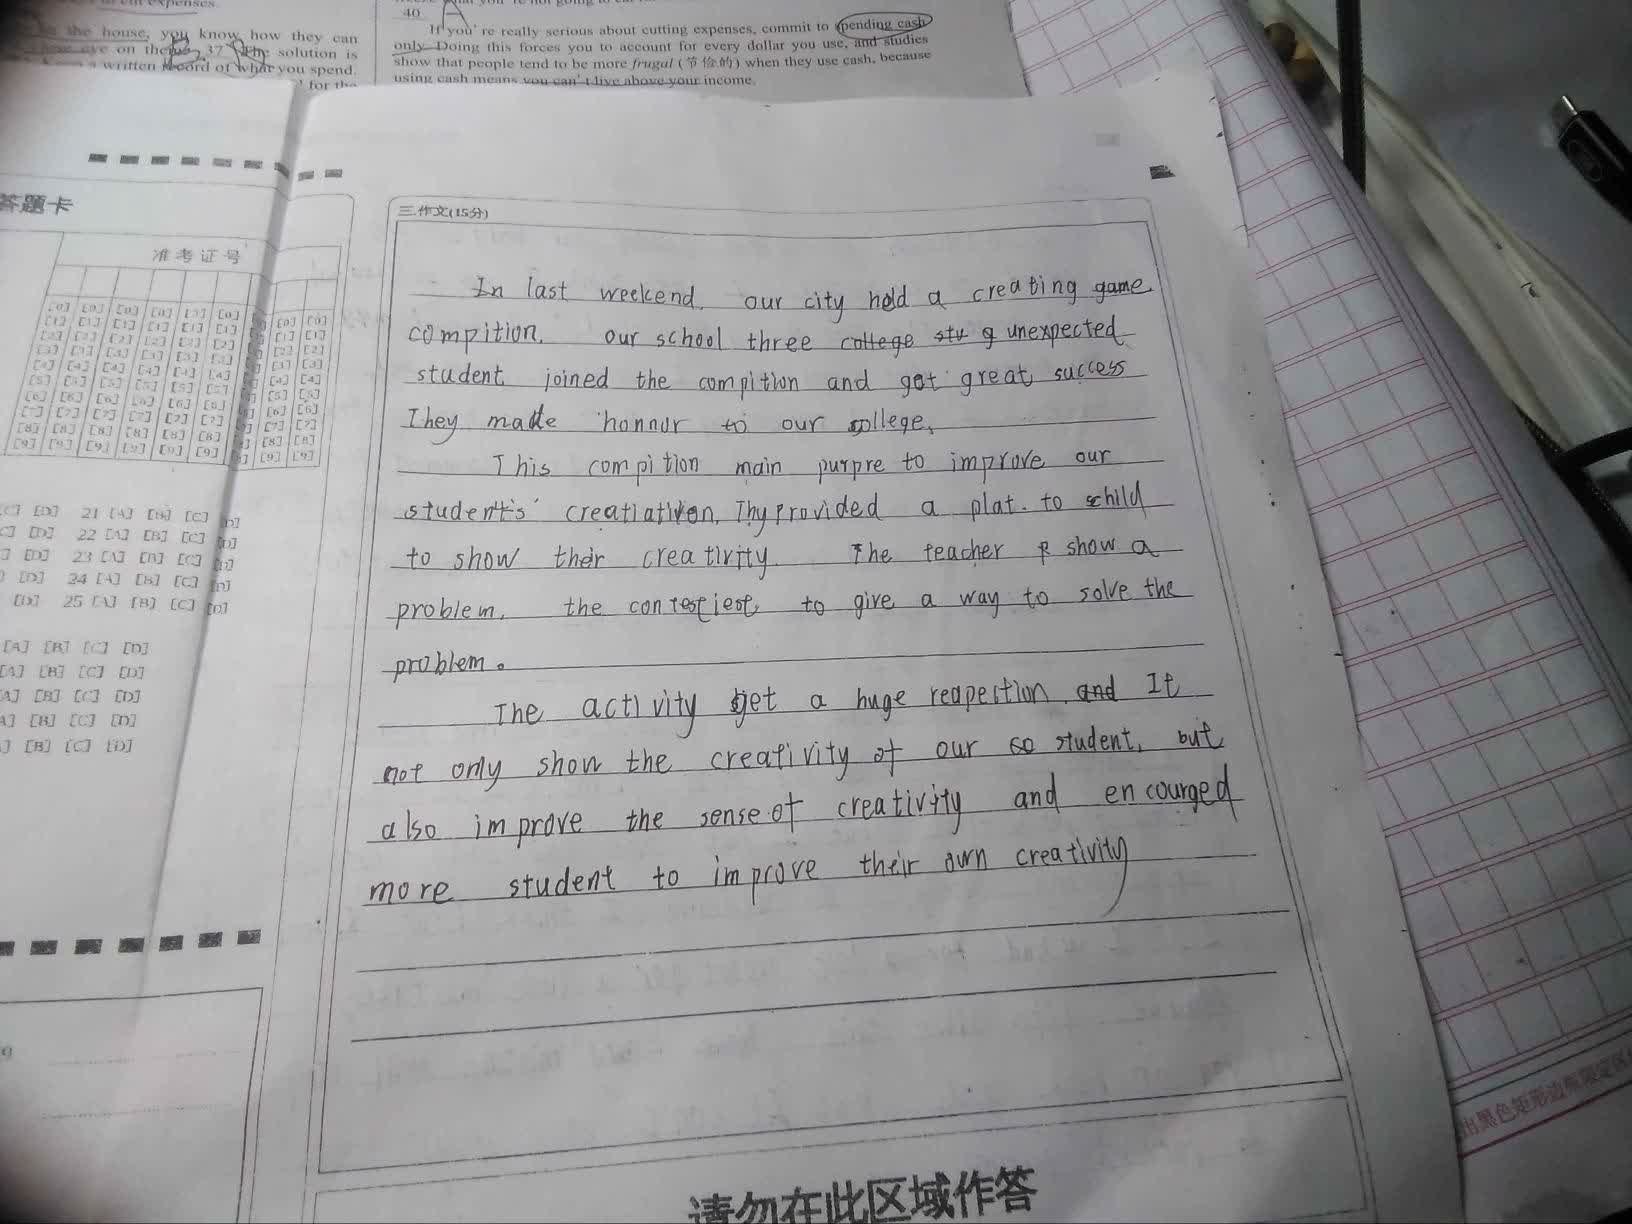 expenses.
the house, you know how they can
eye on them. 37 The solution is
a written record of what you spend.
for the
40.
If you're really serious about cutting expenses, commit to pending cash
only. Doing this forces you to account for every dollar you use, and studies
show that people tend to be more frugal (节俭的) when they use cash, because
using cash means you can't live above your income.
答题卡
准考证号
[0] [0] [0] [0] [0] [0] [0] [0]
[1] [1] [1] [1] [1] [1] [1] [1]
[2] [2] [2] [2] [2] [2] [2] [2]
[3] [3] [3] [3] [3] [3] [3] [3]
[4] [4] [4] [4] [4] [4] [4] [4]
[5] [5] [5] [5] [5] [5] [5] [5]
[6] [6] [6] [6] [6] [6] [6] [6]
[7] [7] [7] [7] [7] [7] [7] [7]
[8] [8] [8] [8] [8] [8] [8] [8]
[9] [9] [9] [9] [9] [9] [9] [9]
[C] [D] 21 [A] [B] [C] [D]
[C] [D] 22 [A] [B] [C] [D]
[C] [D] 23 [A] [B] [C] [D]
[C] [D] 24 [A] [B] [C] [D]
[D] 25 [A] [B] [C] [D]
[A] [B] [C] [D]
[A] [B] [C] [D]
[A] [B] [C] [D]
[A] [B] [C] [D]
[B] [C] [D]
三.作文(15分)
In last weekend, our city hold a creating game
compition. our school three college stu g unexpected
student joined the compition and get great success
They made honnur to our college.
This compition main purpre to improve our
students' creatiativen. Thy provided a plat. to schild
to show their creativity. The teacher show a
problem. the contestiest, to give a way to solve the
problem.
The activity get a huge reapection. and It
not only show the creativity of our co student, but
also improve the sense of creativity and encourged
more student to improve their own creativity
请勿在此区域作答
出黑色矩形边框限定区